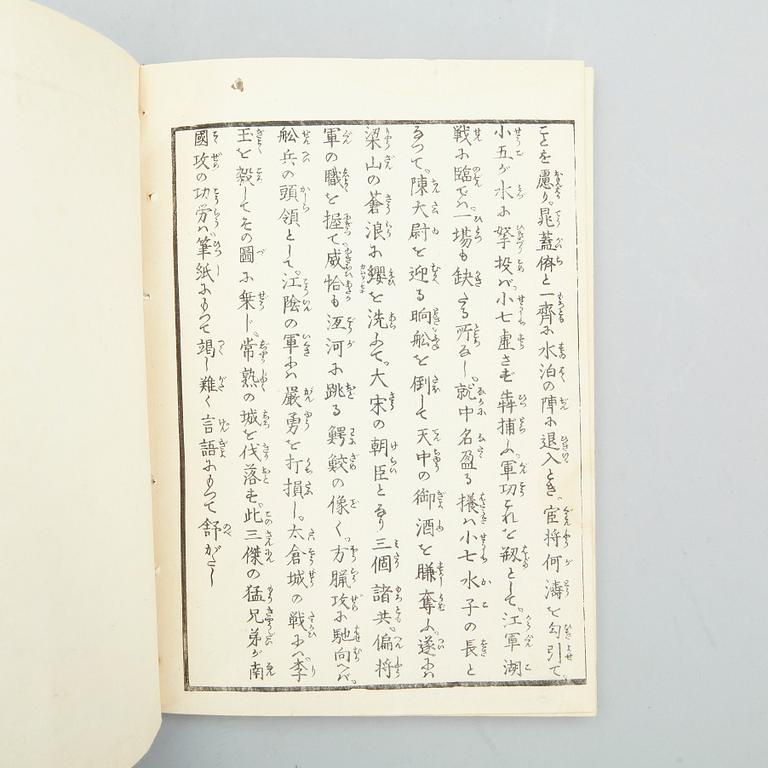 ことを慮り。晁蓋儕と一齊に水泊の陣に退入とき。宦将何濤を勾引て。
小五が水に拏投バ。小七虚さず犇捕ふ。軍功これを初として。江軍湖
戦に臨でハ一場も缺る所なし。就中名盈る様ハ小七水子の長と
なつて。陳大尉を迎る晌舩を倒して天中の御酒を賺奪ふ。遂にハ
梁山の蒼浪に纓を洗ふて。大宋の朝臣となり三個諸共。偏将
軍の職を握て威恰も沍河に跳る鰐鮫の像く。方臘攻に馳向へバ。
舩兵の頭領として。江陰の軍にハ嚴勇を打損し。太倉城の戦にハ李
玉を毅してその圖に乗じ。常熟の城を伐落す。此三傑の猛兄弟が南
國攻の功労ハ筆紙にもつて竭し難く言語にもつて舒がたし